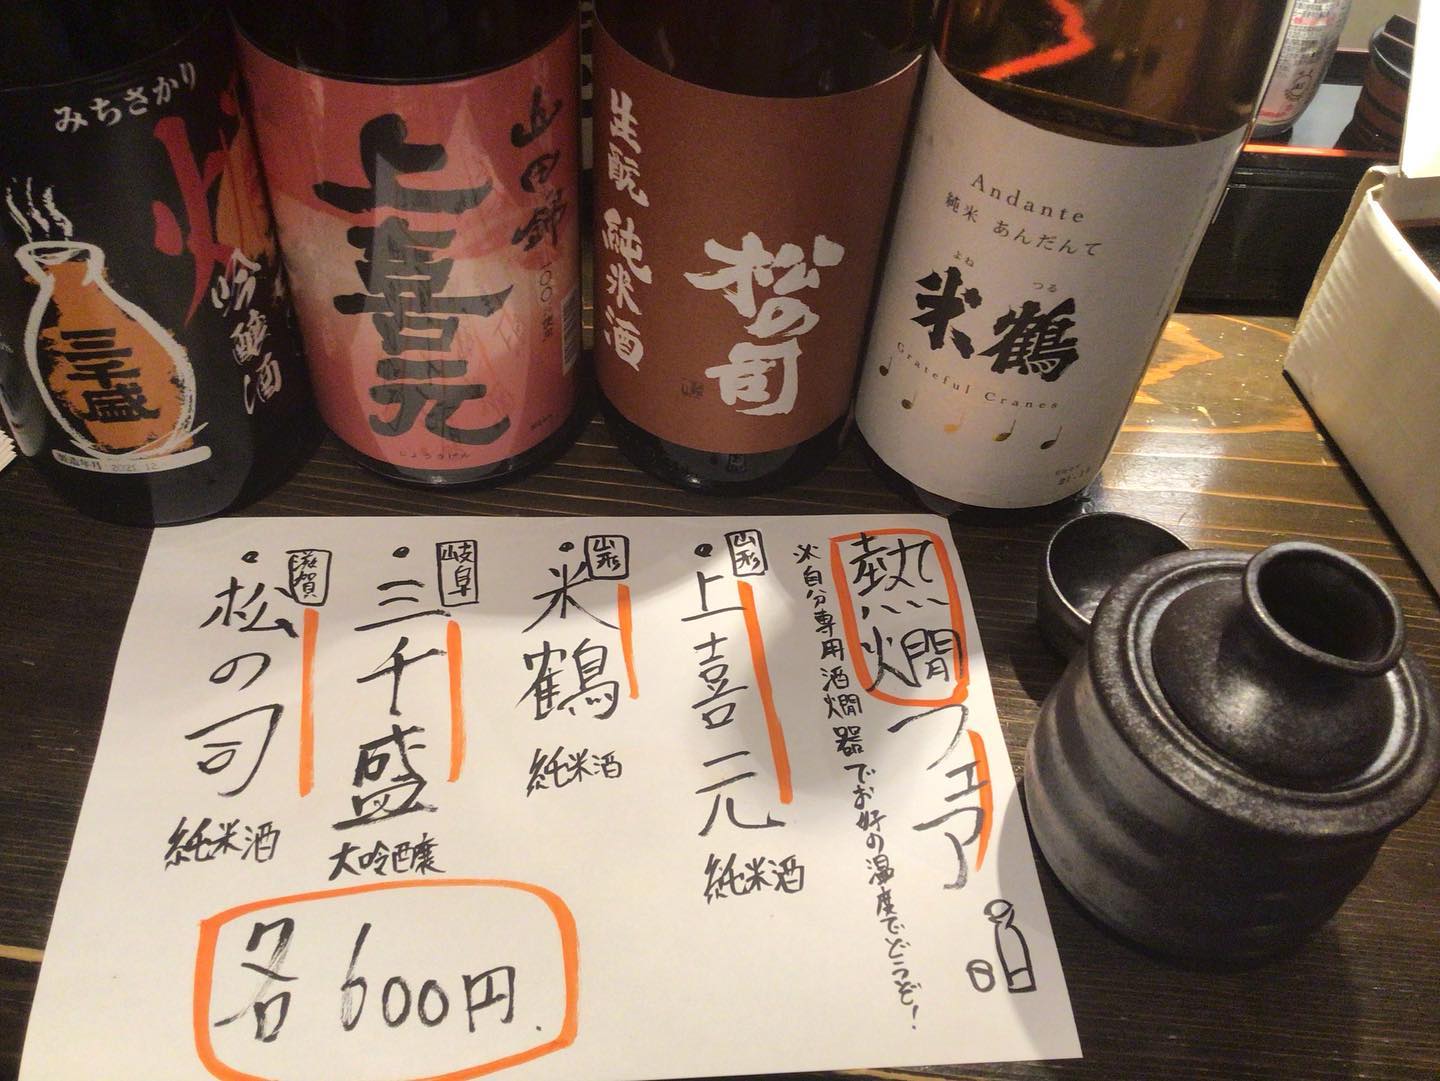 みちさかり
燗
吟醸酒
三千盛
製造年月 2021.12
山田錦
100%
上喜元
じょうきげん
生酛 純米酒
松の司
Andante
純米 あんだんて
よね つる
米鶴
Grateful Cranes
熱燗フェア
※自分専用酒燗器でお好の温度でどうぞ!
山形
・上喜元
純米酒
山形
・米鶴
純米酒
岐阜
・三千盛
大吟醸
滋賀
・松の司
純米酒
各600円.